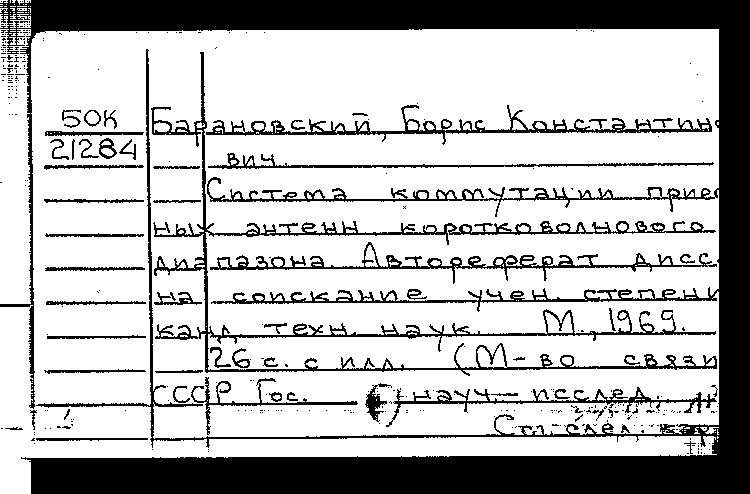 50К
21284
Барановский, Борис Константино
вич.
Система коммутации прием
ных антенн коротковолнового
диапазона. Автореферат дисс.
на соискание учен. степени
канд. техн. наук. М., 1969.
26 с. с илл. (М-во связи
СССР. Гос. науч.-исслед.
См. след. карт